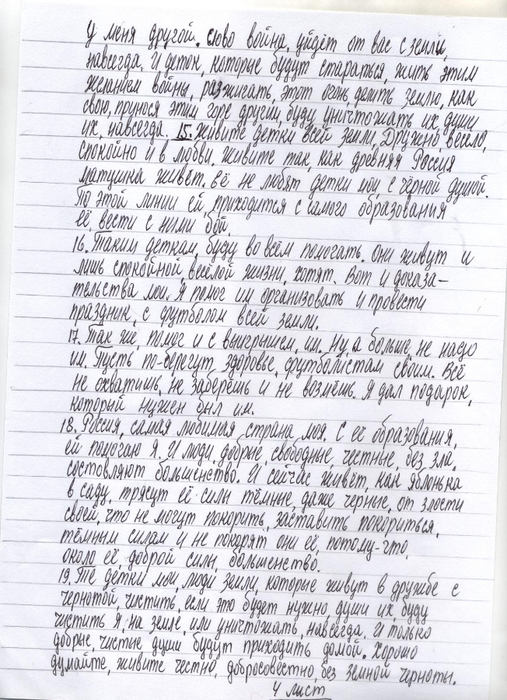 У меня другой. слово война, уйдёт от вас с земли,
навсегда. И деток, которые будут стараться, жить этим
желанием войны, разжигать, этот огонь, делить землю, как
свою, принося этим горе другим, буду уничтожать их души
их, навсегда. 15. Живите детки всей земли, Дружно, весело,
спокойно и в любви, живите так, как древняя Россия
матушка живёт. Её не любят детки мои с чёрной душой.
По этой линии ей приходится с самого образования
её, вести с ними бой.
16. Таким деткам, буду во всём помогать. Они живут и
лишь спокойной весёлой жизни, хотят. Вот и доказа-
тельства мои. Я помог им организовать и провести
праздник, с футболом всей земли.
17. Так же, помог и с выигрышем, им. Ну, а больше, не надо
им. Пусть по-берегут, здоровье, футболистам своим. Всё
не охватишь, не заберёшь и не возмёшь. Я дал подарок,
который нужен был им.
18. Россия, самая любимая, страна, моя. С её образования,
ей помогаю Я. И люди, добрые, свободные, честные, без зла,
составляют большенство. И сейчас живёт, как яблонька
в саду. трясут её силы тёмные, даже чёрные, от злости
своей, что не могут покорить, заставить покориться,
тёмным силам и не покорят они её, потому-что,
около её, доброй силы, большенство.
19. Те детки мои, люди земли, которые живут в дружбе с
чернотой, чистить, если это будет нужно, души их, буду
чистить я, на земле, или уничтожать, навсегда. И только
добрые, чистые души будут приходить домой. Хорошо
думайте, живите честно, добросовестно, без земной черноты.
4 лист